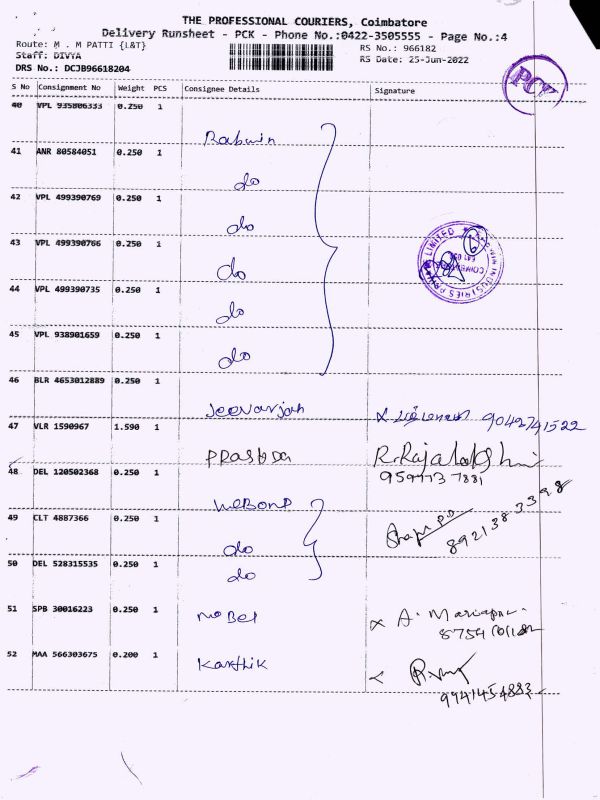 THE PROFESSIONAL COURIERS, Coimbatore
Delivery Runsheet - PCK - Phone No.:0422-3505555 - Page No.:4
Route: M . M PATTI {L&T}
RS No.: 966182
Staff: DIVYA
RS Date: 25-Jun-2022
DRS No.: DCJB96618204
PCK
S No Consignment No Weight PCS Consignee Details Signature
40 VPL 935806333 0.250 1
41 ANR 80584051 0.250 1
do
42 VPL 499390769 0.250 1
do
43 VPL 499390766 0.250 1
do
44 VPL 499390735 0.250 1
do
45 VPL 938901659 0.250 1
do
46 BLR 4653012889 0.250 1
9042741522
47 VLR 1590967 1.590 1
R. Rajalakshmi
48 DEL 120502368 0.250 1
49 CLT 4887366 0.250 1
do
8921383398
50 DEL 528315535 0.250 1
do
51 SPB 30016223 0.250 1
Nobel
A.
52 MAA 566303675 0.200 1
Karthik
9941454883